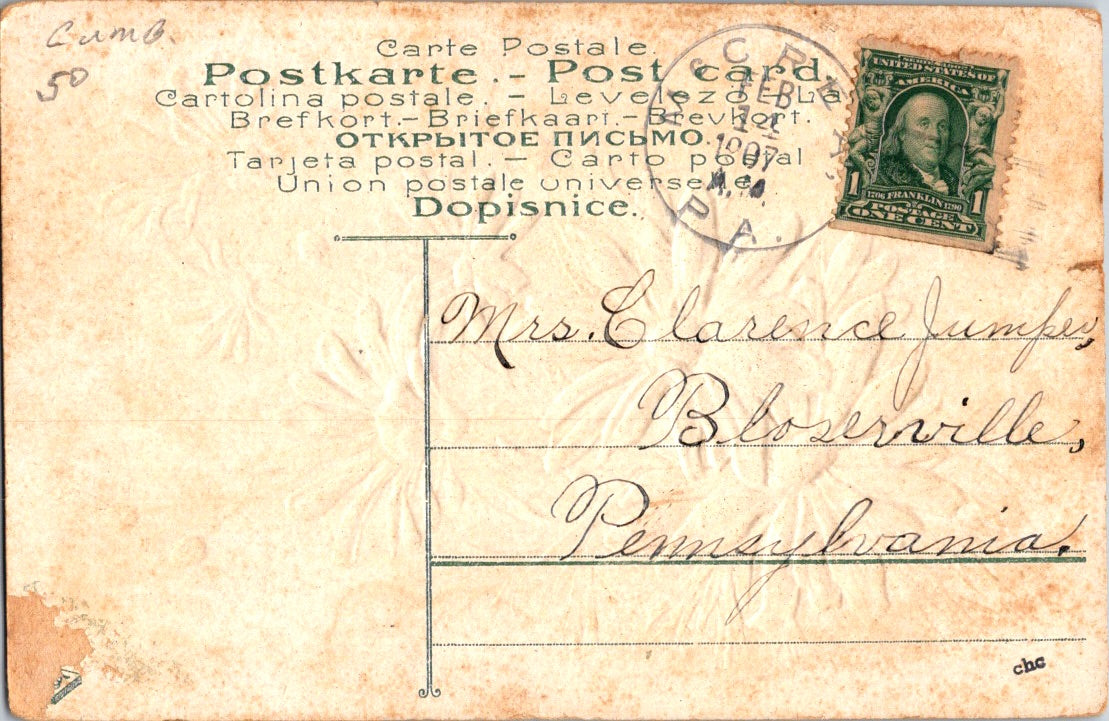 Cumb.
50
Carte Postale.
Postkarte. - Post card.
Cartolina postale. - Levelezö-Lap
Brefkort. - Briefkaart. - Brevkort.
ОТКРЫТОЕ ПИСЬМО.
Tarjeta postal. - Carto postal
Union postale universelle.
Dopisnice.
FEB
1907
A.M.
PA.
UNITED STATES OF
AMERICA
1 1706 FRANKLIN 1790 1
POSTAGE
ONE CENT
Mrs. Clarence Jumper,
Bloserville,
Pennsylvania.
chc